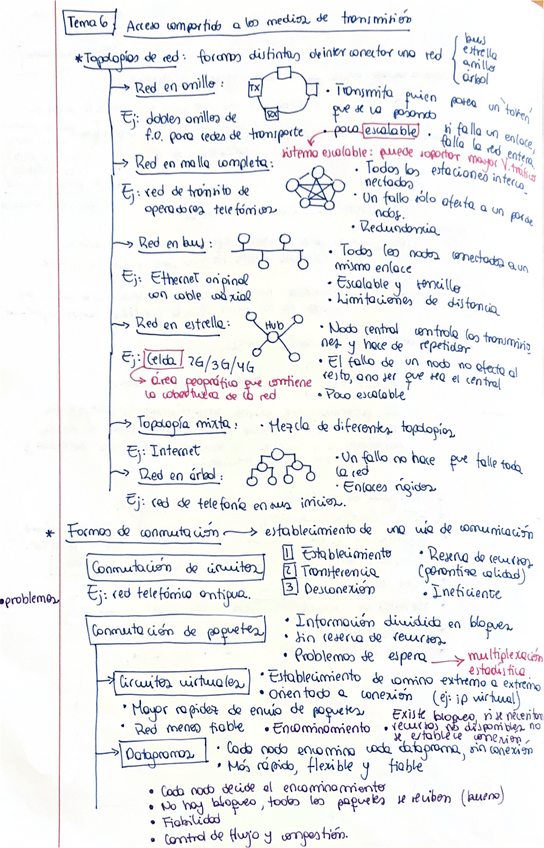 Tema 6: Acceso compartido a los medios de transmisión
* Topologías de red: formas distintas de interconectar una red
bus
estrella
anillo
árbol
→ Red en anillo:
TX
RX
• Transmita quien posea un "token"
que se va pasando
Ej: dobles anillos de
f.o. para redes de transporte
• poco escalable • si falla un enlace,
falla la red entera
sistema escalable: puede soportar mayor V. tráfico
→ Red en malla completa:
• Todas las estaciones interco
nectadas
Ej: red de tránsito de
operadores telefónicos
• Un fallo sólo afecta a un par de
nodos.
• Redundancia
→ Red en bus:
• Todos los nodos conectados a un
mismo enlace
Ej: Ethernet original
con cable coaxial
• Escalable y sencillo
• Limitaciones de distancia
→ Red en estrella:
Hub
• Nodo central controla las transmisio
nes y hace de repetidor
Ej: Celda 2G/3G/4G
• El fallo de un nodo no afecta al
resto, a no ser que sea el central
→ área geográfica que contiene
la cobertura de la red
• Poco escalable
→ Topología mixta: • Mezcla de diferentes topologías
Ej: Internet
→ Red en árbol:
• Un fallo no hace que falle toda
la red
• Enlaces rígidos
Ej: red de telefonía en sus inicios.
* Formas de conmutación → establecimiento de una vía de comunicación
Conmutación de circuitos
1 Establecimiento
2 Transferencia
3 Desconexión
• Reserva de recursos
(garantiza calidad)
• Ineficiente
Ej: red telefónica antigua.
• problemas
Conmutación de paquetes
• Información dividida en bloques
• Sin reserva de recursos
• Problemas de espera → multiplexación
estadística
→ Circuitos virtuales
• Establecimiento de camino extremo a extremo
• Orientado a conexión (ej: ip virtual)
• Mayor rapidez de envío de paquetes
• Red menos fiable • Encaminamiento
Existe bloqueo, si se necesitan
recursos no disponibles no
se establece conexión.
→ Datagramas
• Cada nodo encamina cada datagrama, sin conexión
• Más rápido, flexible y fiable
• Cada nodo decide el encaminamiento
• No hay bloqueo, todos los paquetes se reciben (bueno)
• Fiabilidad
• Control de flujo y congestión.